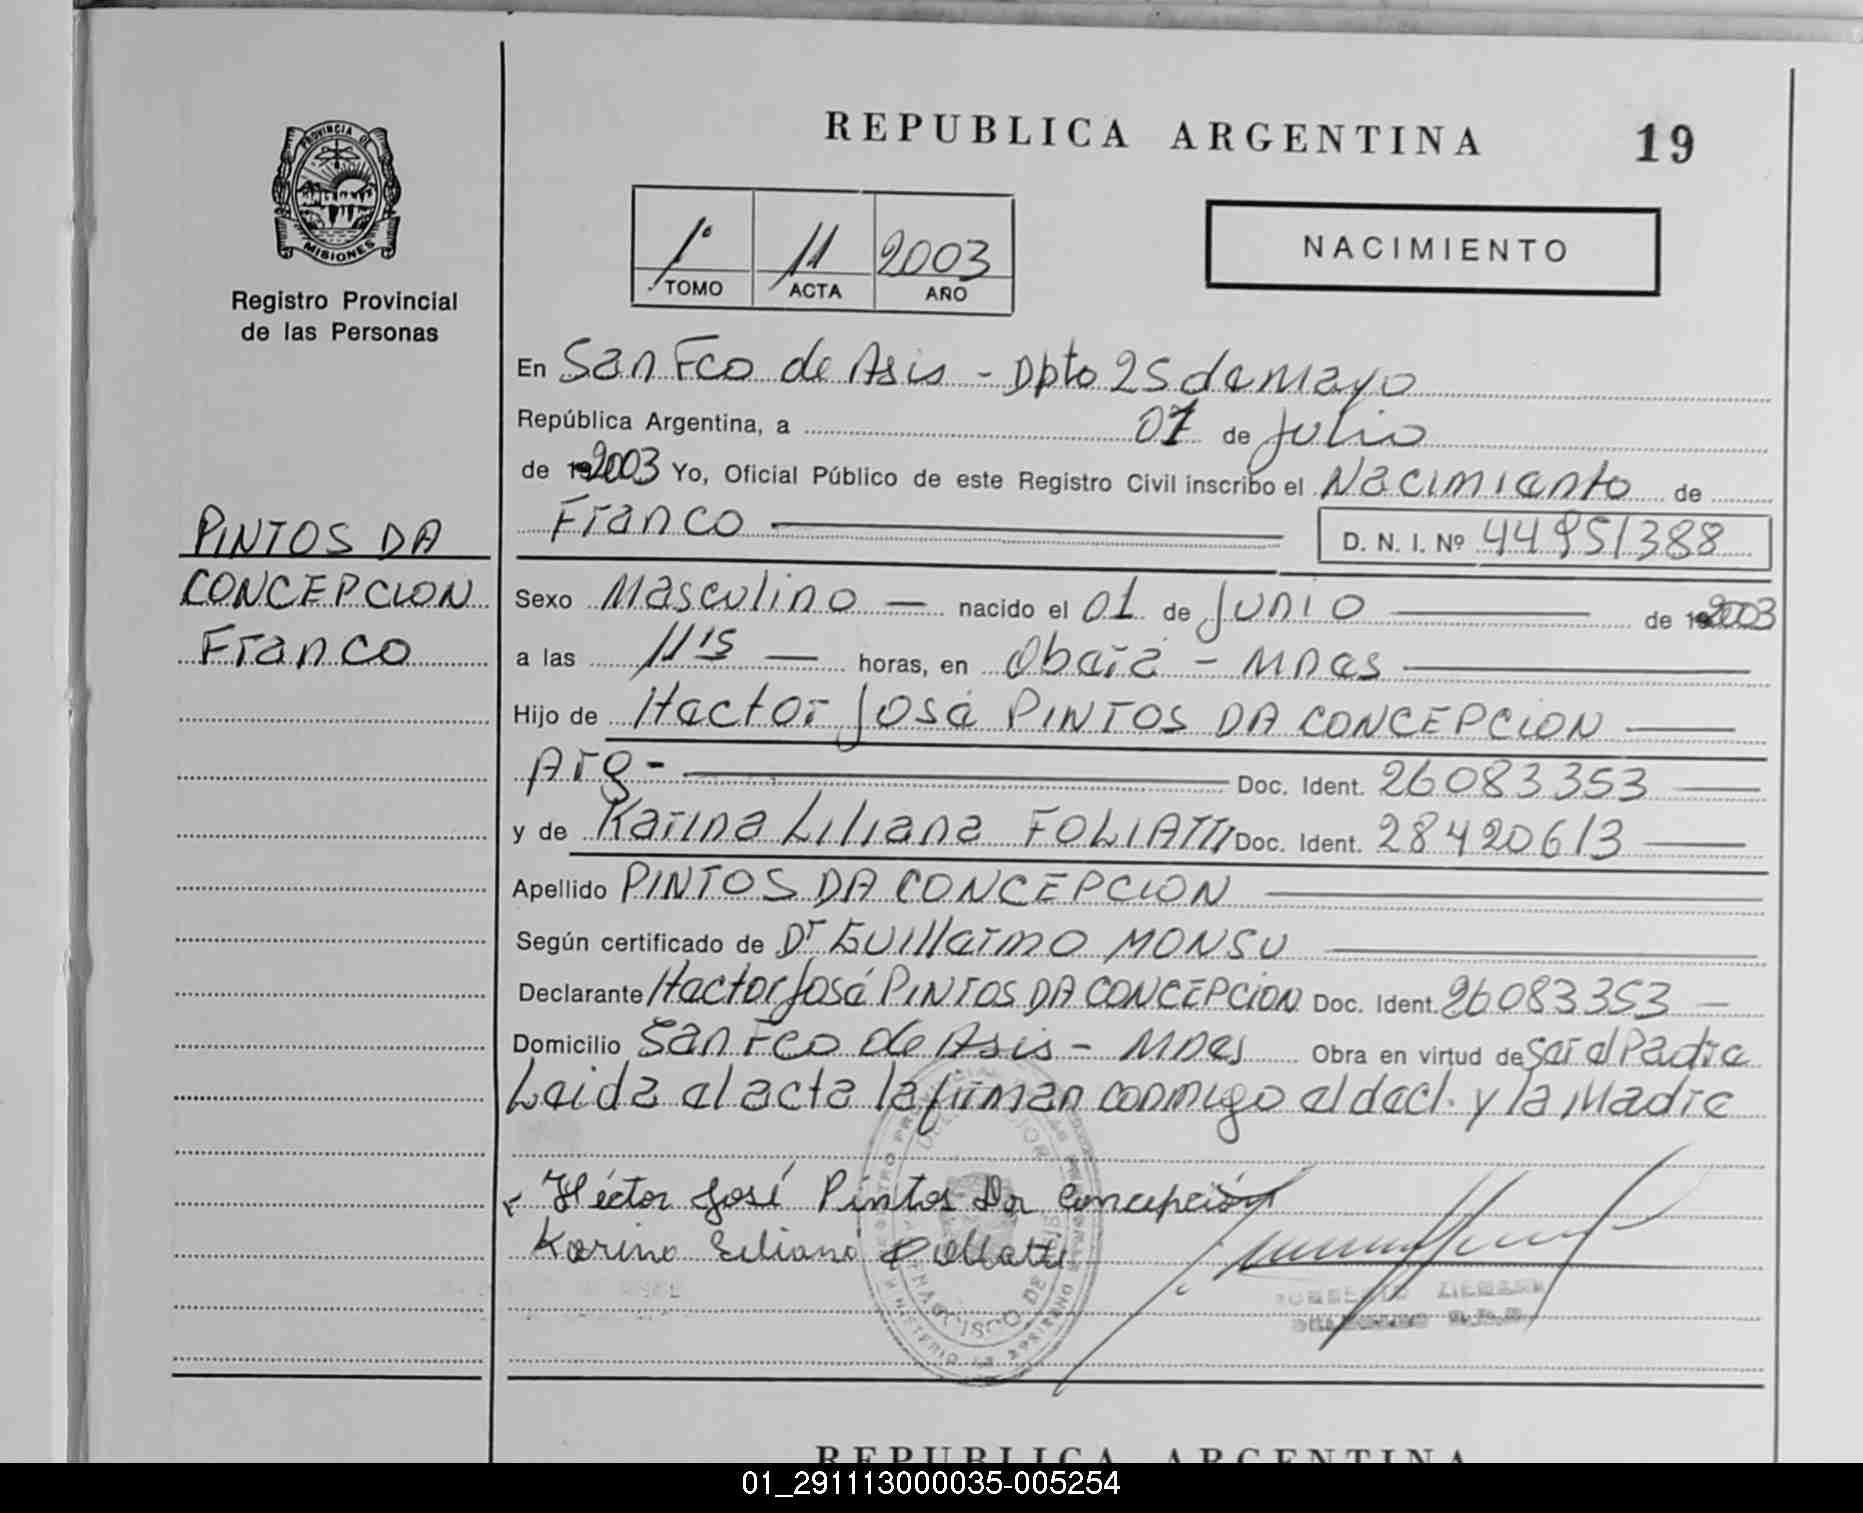 REPUBLICA ARGENTINA 19
PROVINCIA DE MISIONES
Registro Provincial
de las Personas
1º 11 2003
TOMO ACTA AÑO
NACIMIENTO
En San Fco de Asis - Dpto 25 de Mayo
República Argentina, a 07 de Julio
de 2003 Yo, Oficial Público de este Registro Civil inscribo el Nacimiento de
Franco D. N. I. Nº 44951388
PINTOS DA
CONCEPCION
Franco
Sexo Masculino — nacido el 01 de Junio de 2003
a las 11 15 — horas, en Oberá - Mnes
Hijo de Hector José PINTOS DA CONCEPCION
Arg - Doc. Ident. 26083353
y de Karina Liliana FOLIATTI Doc. Ident. 28420613
Apellido PINTOS DA CONCEPCION
Según certificado de Dr Guillermo MONSU
Declarante Hector José PINTOS DA CONCEPCION Doc. Ident. 26083353 —
Domicilio San Fco de Asis - Mnes Obra en virtud de ser el Padre
Leida el acta la firman conmigo el decl. y la Madre
Héctor José Pintos Da Concepción
Karina Liliana
REPUBLICA ARGENTINA
01_291113000035-005254